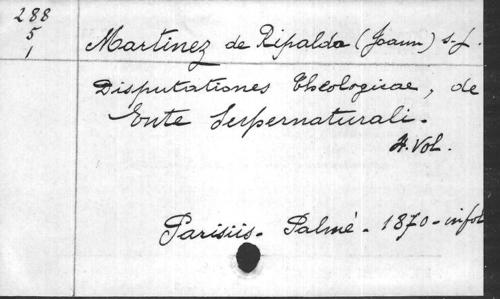 288
5
1
Martinez de Ripalda (Joann) s.j.
Disputationes Theologicae, de
Ente Supernaturali.
4. Vol.
Parisiis. Palmé - 1870 - infol